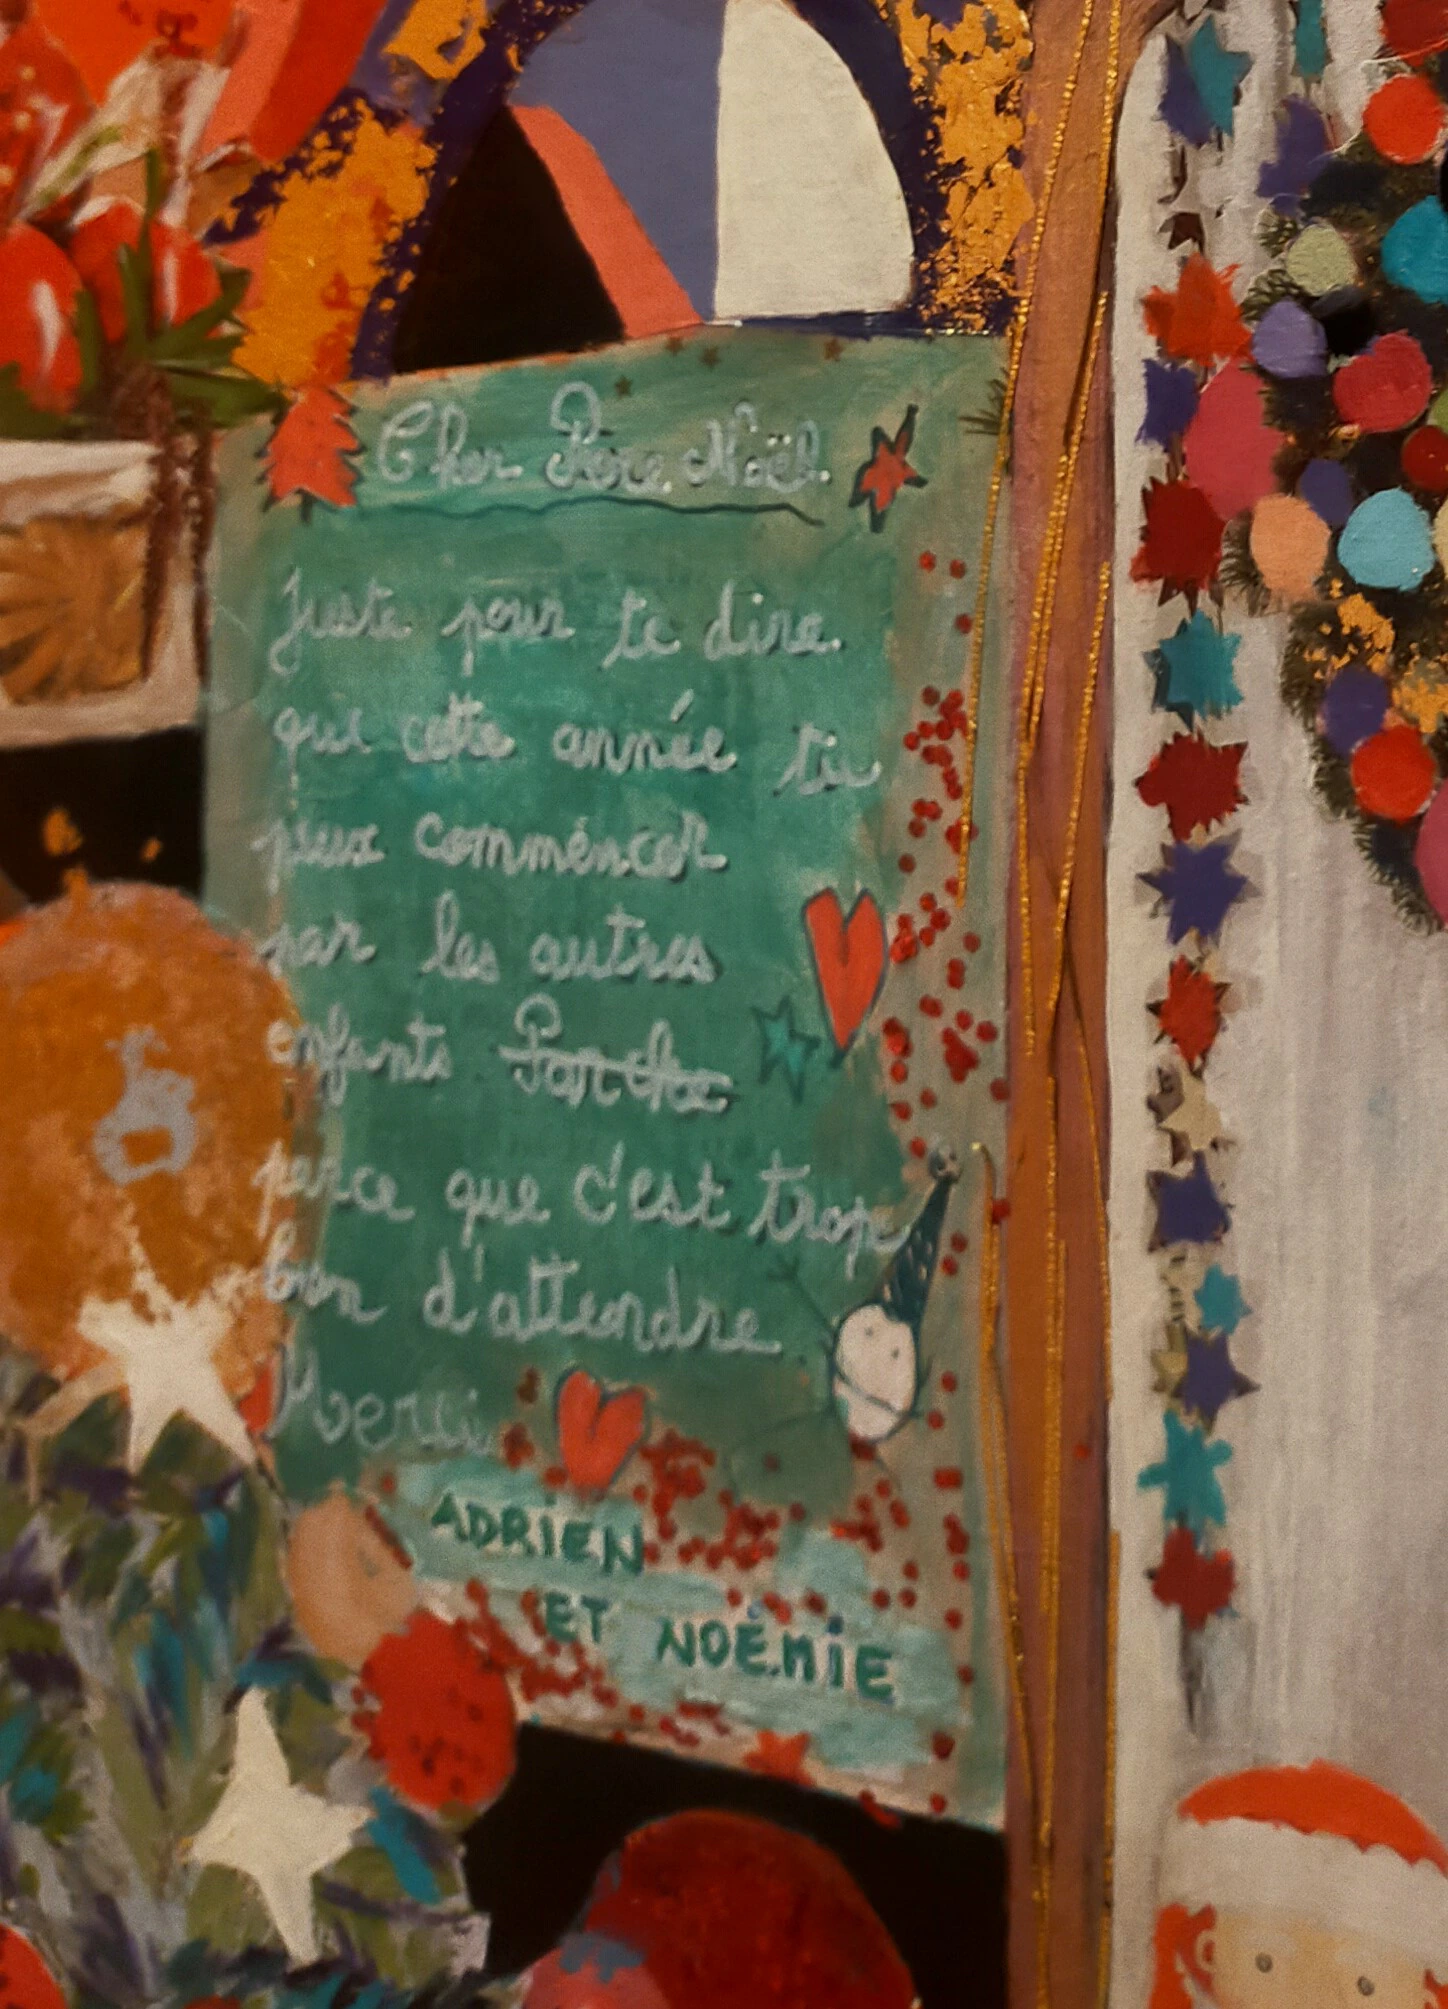 Cher Père Noël
Juste pour te dire
que cette année tu
peux commencer
par les autres
enfants Parcke
perce que c'est trop
bon d'attendre
Merci
ADRIEN
ET NOÉMIE